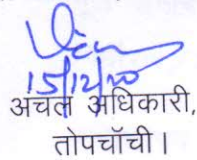 15/12/20
अचल अधिकारी,
तोपचाँची।